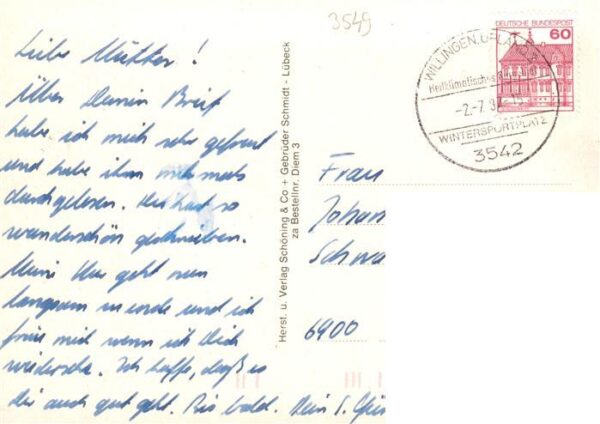 Liebe Mutter!
Über Deinen Brief
habe ich mich sehr gefreut
und habe ihn mehrmals
durchgelesen. Du hast so
wunderschön geschrieben.
Meine Kur geht nun
langsam zu Ende und ich
freue mich wenn ich Dich
wiedersehe. Ich hoffe, daß es
Dir auch gut geht. Bis bald. Dein
Herst. u. Verlag Schöning & Co + Gebrüder Schmidt - Lübeck
za Bestellnr. Diem 3
3549
DEUTSCHE BUNDESPOST
60
WILLINGEN
Heilklimatischer
-2.-7.8
WINTERSPORTPLATZ
3542
Frau
Johan
Schwa
6900